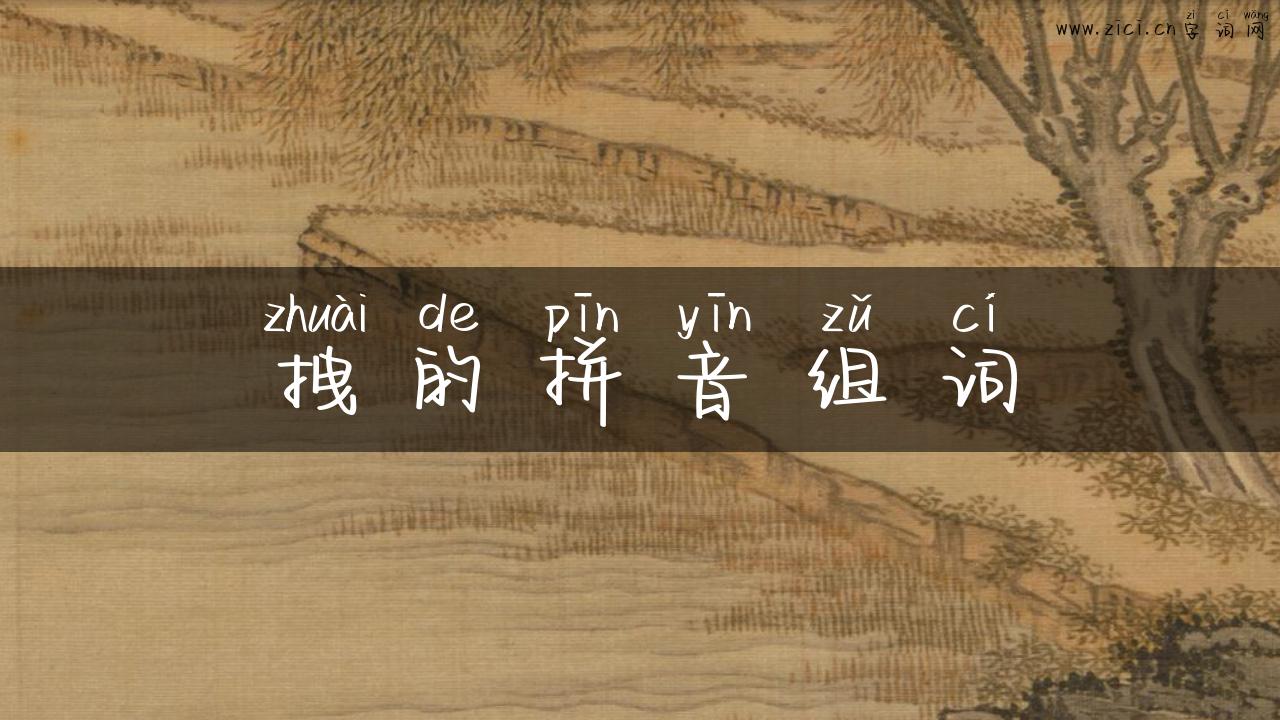 zì cí wǎng
www.zici.cn字词网
zhuài de pīn yīn zǔ cí
拽的拼音组词